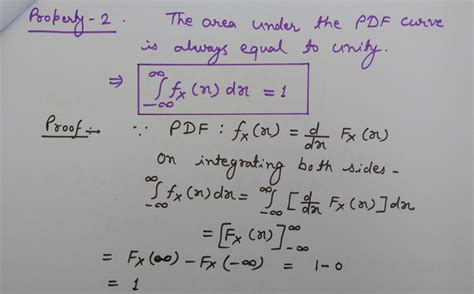 Property-2. The area under the PDF curve
is always equal to unity.
⇒ ∫_{-∞}^{∞} f_X(x) dx = 1
Proof :- ∵ PDF : f_X(x) = d/dx F_X(x)
On integrating both sides -
∫_{-∞}^{∞} f_X(x) dx = ∫_{-∞}^{∞} [d/dx F_X(x)] dx
= [F_X(x)]_{-∞}^{∞}
= F_X(∞) - F_X(-∞) = 1-0
= 1